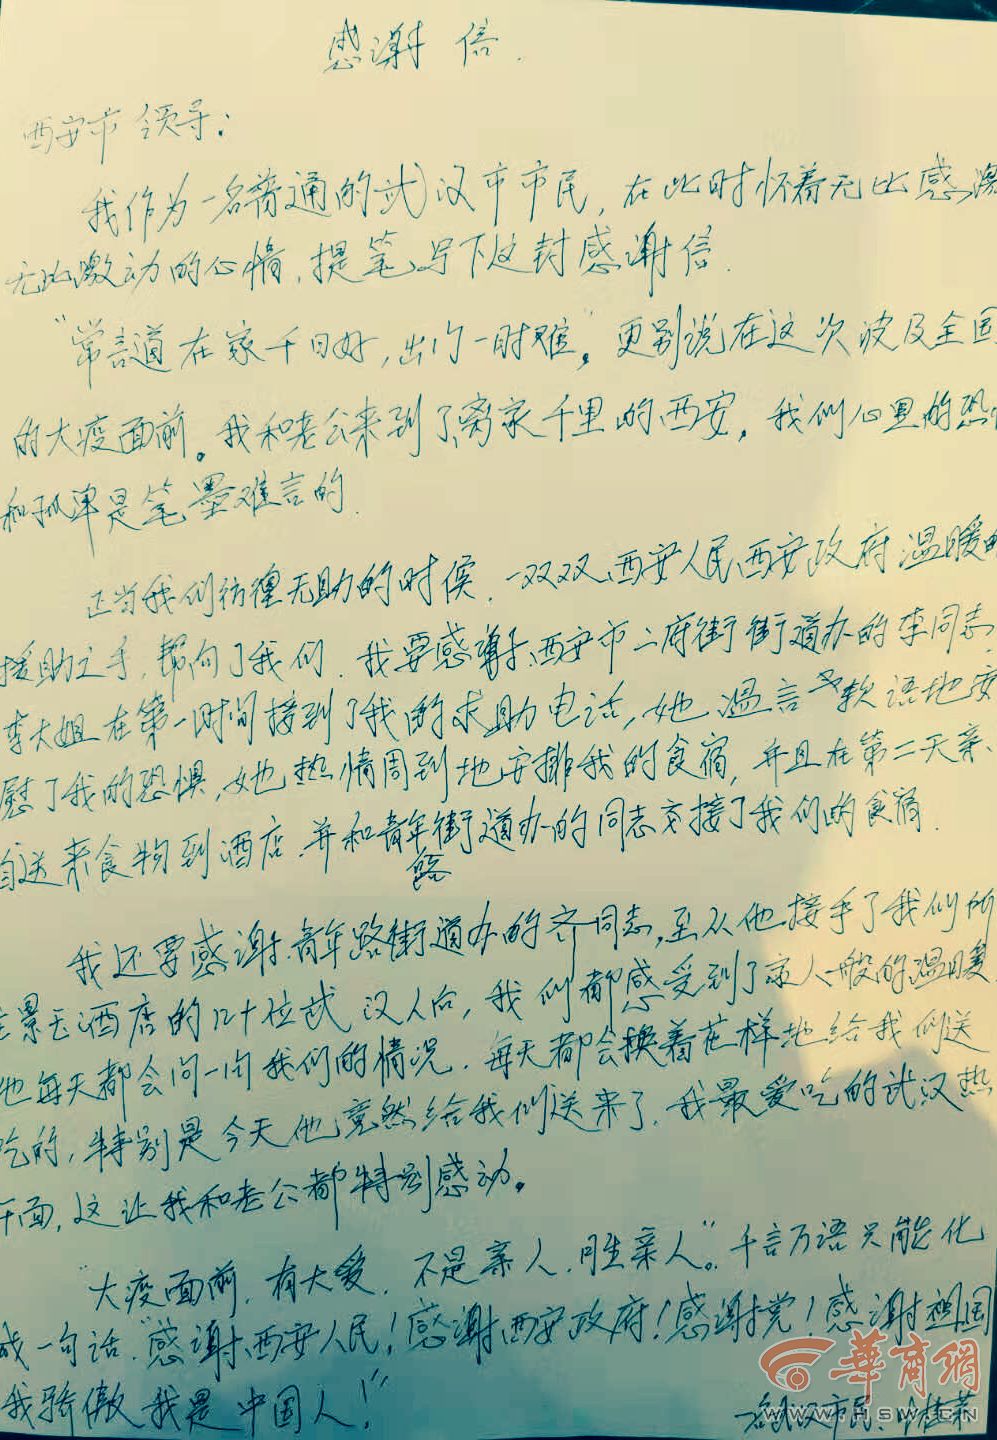 感谢信.
西安市领导:
我作为一名普通的武汉市市民, 在此时怀着无比感激
无比激动的心情, 提笔写下这封感谢信.
"常言道在家千日好, 出门一时难"。更别说在这次波及全国
的大疫面前。我和老公来到了离家千里的西安, 我们心里的恐
和孤单是笔墨难言的.
正当我们彷徨无助的时候, 一双双西安人民西安政府温暖的
援助之手, 帮向了我们. 我要感谢西安市二府街街道办的李同志,
李大姐在第一时间接到了我的求助电话, 她温言软语地安
慰了我的恐惧, 她热情周到地安排我的食宿, 并且在第二天亲
自送来食物到酒店. 并和青年街道办的同志交接了我们的食宿.
路
我还要感谢青年路街道办的齐同志, 至从他接手了我们所
住景天酒店的几十位武汉人后, 我们都感受到了家人一般的温暖
他每天都会问一问我们的情况. 每天都会换着花样地给我们送
吃的, 特别是今天他竟然给我们送来了, 我最爱吃的武汉热
干面, 这让我和老公都特别感动。
"大疫面前, 有大爱, 不是亲人, 胜亲人"。千言万语只能化
成一句话. "感谢西安人民! 感谢西安政府! 感谢党! 感谢祖国
我骄傲我是中国人!"
一名武汉市民: 桂荣
华商网
WWW.HSW.CN